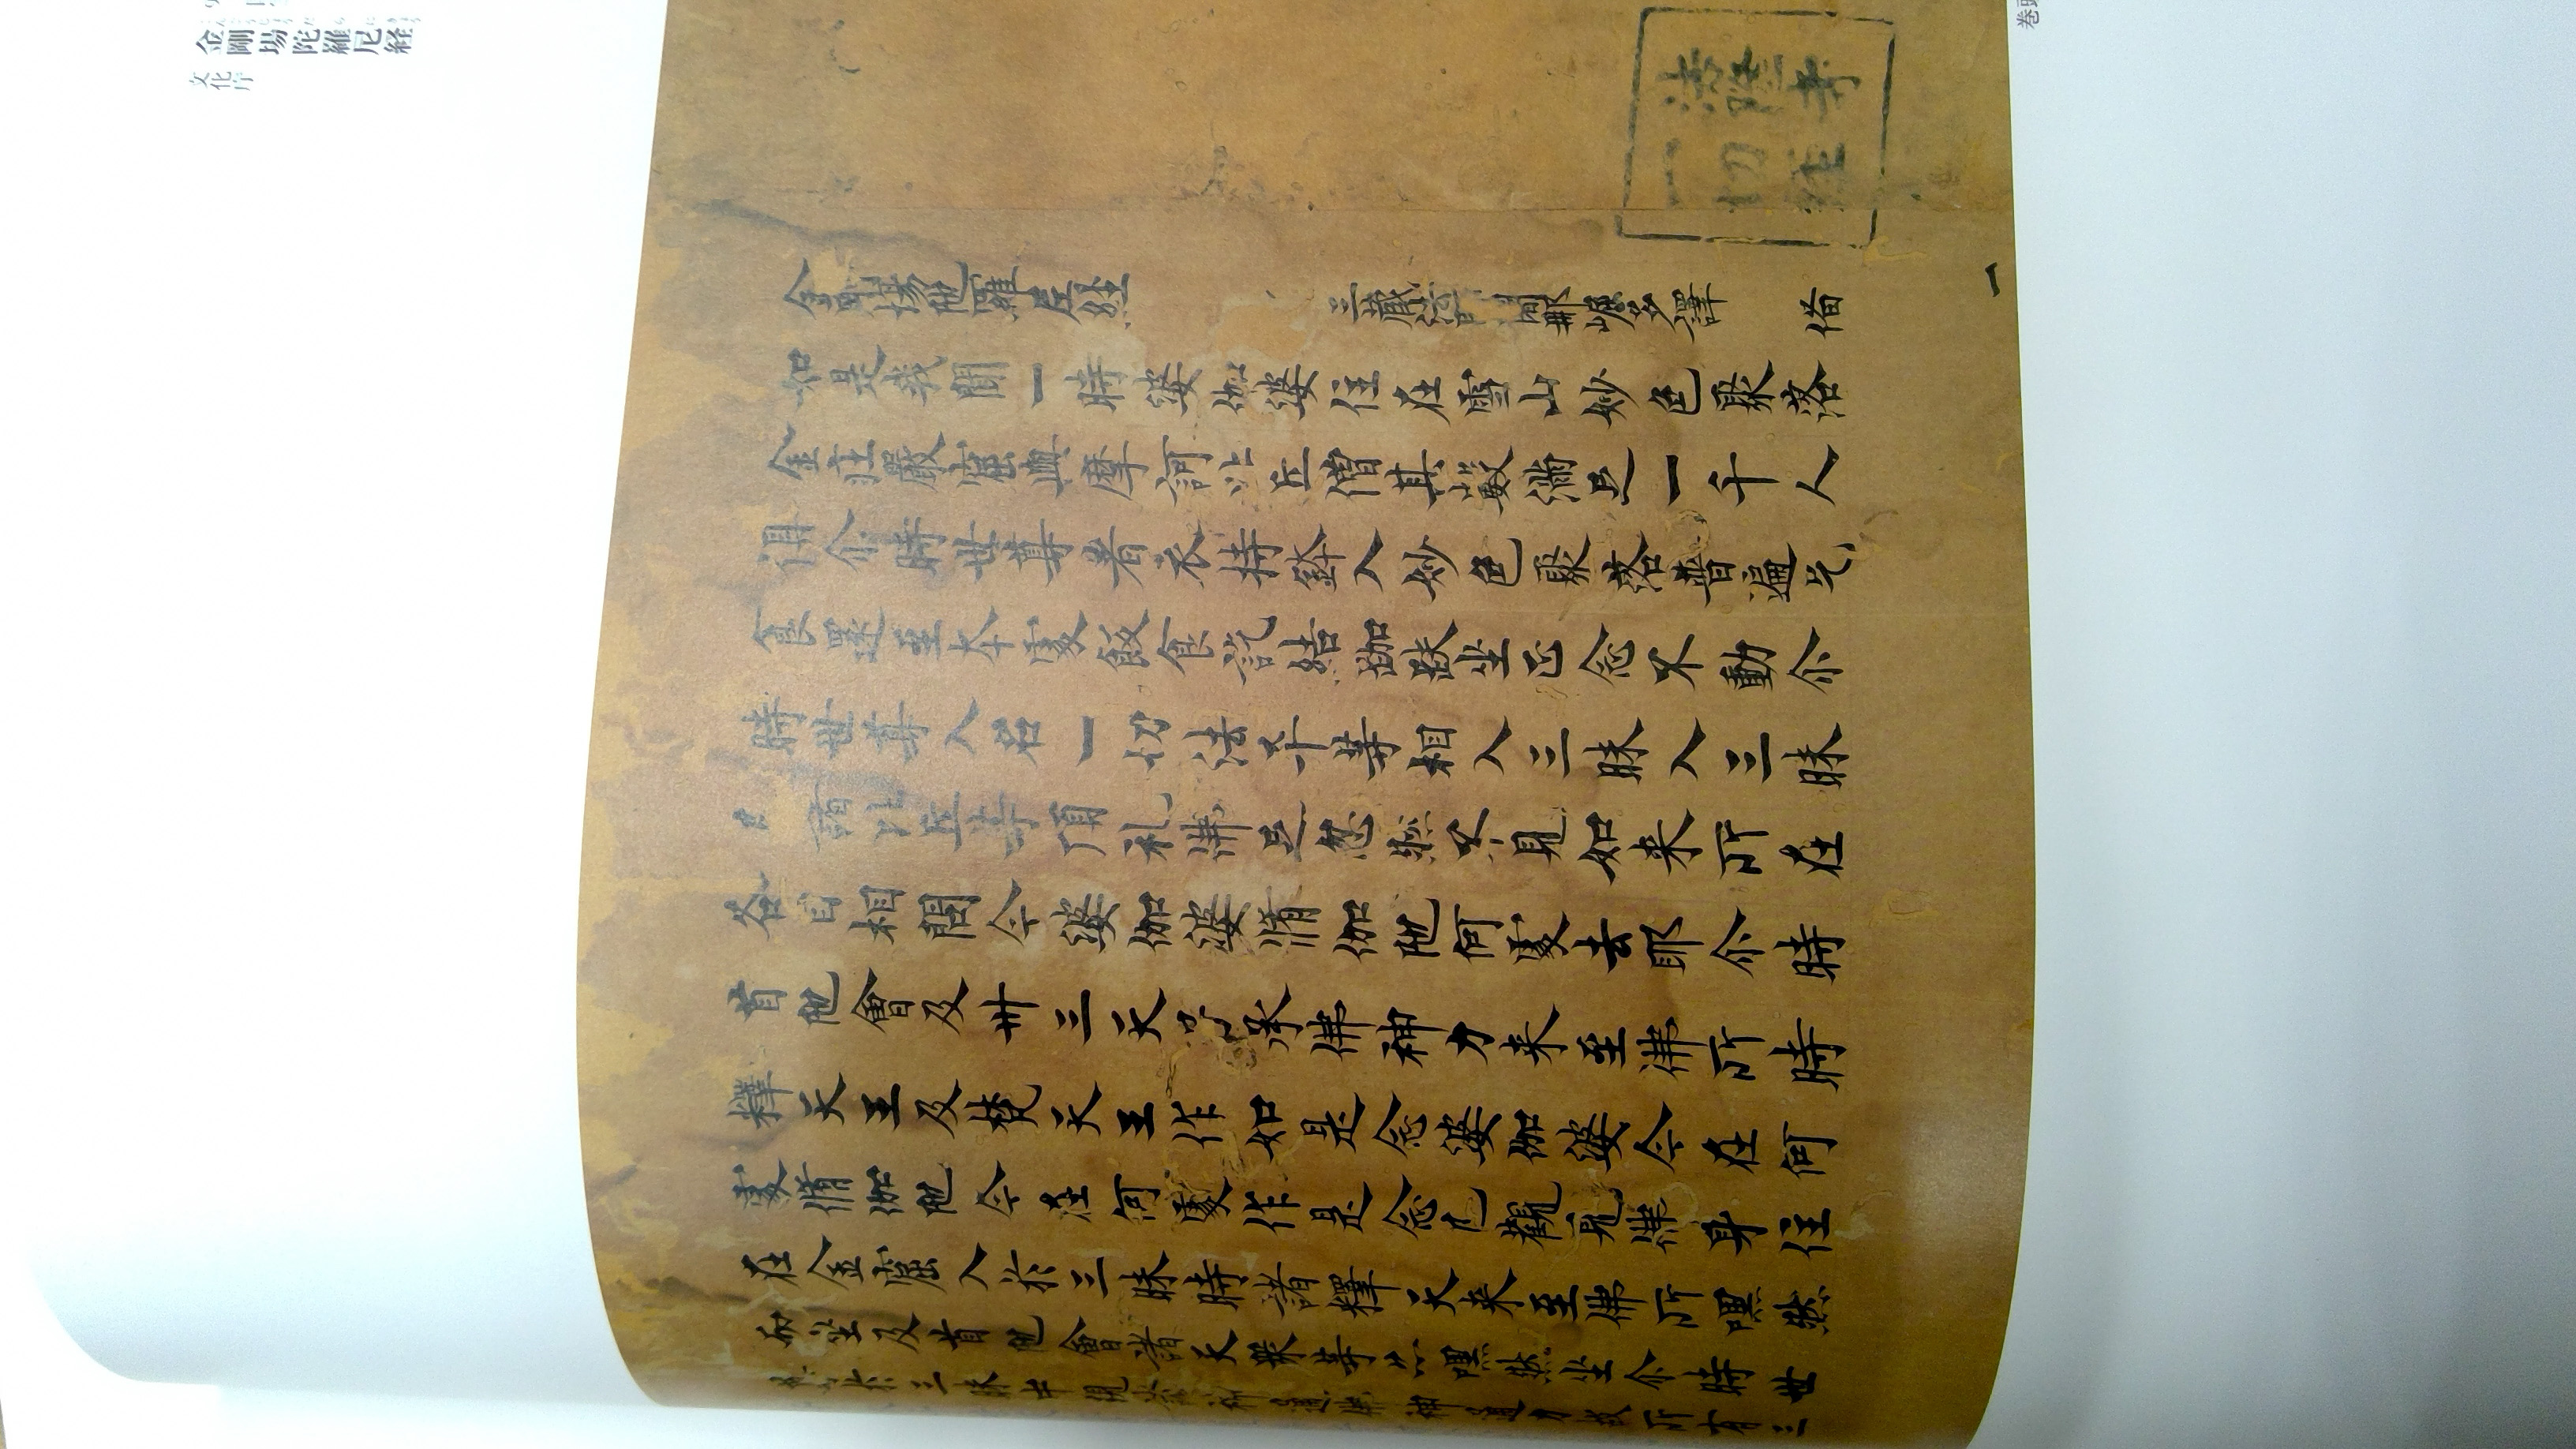 金剛場陀羅尼経
文化庁
法隆寺
一切経
金剛場陁羅尼経 三蔵法師闍那崛多譯 偹
如是我聞一時婆伽婆住在雪山妙色聚落
金庄嚴窟與摩訶比丘僧其數滿足一千人
俱尒時世尊著衣持鉢入妙色聚落普遍乞
食還至本處飯食訖結跏趺坐正念不動尒
時世尊入名一切法平等相入三昧入三昧
諸比丘等頂礼佛足忽然不見如来所在
各自相問今婆伽婆脩伽陁何處去耶尒時
首陁會及卅三天子承佛神力来至佛所時
釋天王及梵天王作如是念婆伽婆今在何
處脩伽陁今在何處作是念已觀見佛身住
在金窟入於三昧時諸釋天来至佛所嘿然
而坐及首陁會諸天衆等亦嘿然坐尒時世
於三昧中現神通佛神通力故所有三
一
巻